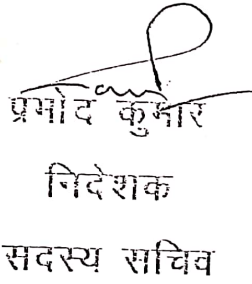 प्रमोद कुमार
निदेशक
सदस्य सचिव